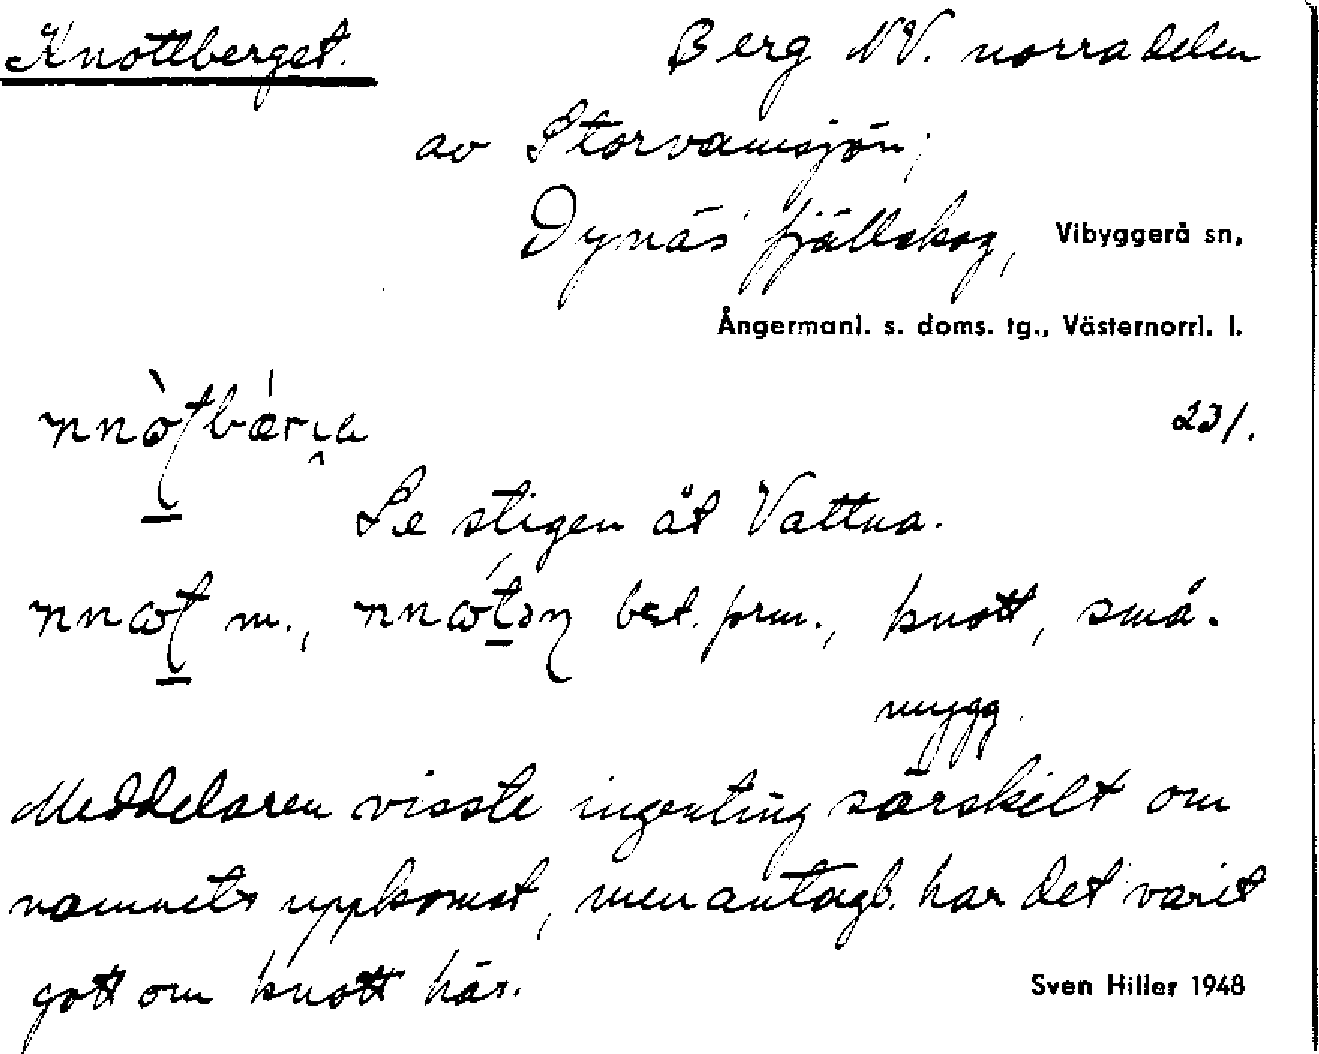 Knottberget. Berg NV. norra delen
av Storvamsjön,
Dynäs fjällskog, Vibyggerå sn,
Ångermanl. s. doms. tg., Västernorrl. l.
231.
Se stigen åt Vattna.
m., best. form., knott, små-
mygg.
Meddelaren visste ingenting särskilt om
namnets uppkomst, men antagl. har det varit
gott om knott här.
Sven Hiller 1948